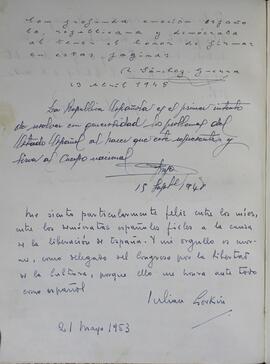 Con profunda emoción españo
la, republicana y demócrata
al tener el honor de firmar
en estas páginas
R. Sánchez Guerra
13 Abril 1948
La República Española es el primer intento
de resolver con generosidad los problemas del
Estado Español al hacer que este represente y
sirva al cuerpo nacional
15 Sept 1948
Me siento particularmente feliz entre los míos,
entre los demócratas españoles fieles a la causa
de la liberación de España. Y mi orgullo es
como delegado del Congreso por la Libertad
de la Cultura, porque ello me honra ante todo
como español
Julian Gorkin
21 Mayo 1953